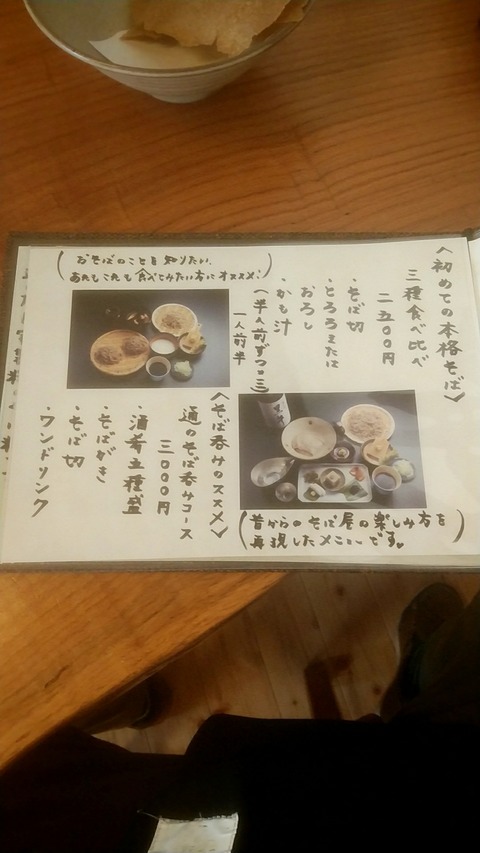 〈初めての本格そば〉
三種食べ比べ
二五〇〇円
・そば切
・とろろまたは
おろし
・かも汁
(半人前ずつ×三)
一人前半
(おそばのことを知りたい、
あれもこれも食べてみたい方にオススメ!)
〈そば呑みのススメ〉
通のそば呑みコース
三〇〇〇円
・酒肴五種盛
・そばがき
・そば切
・ワンドリンク
(昔からのそば屋の楽しみ方を
再現したメニューです。)